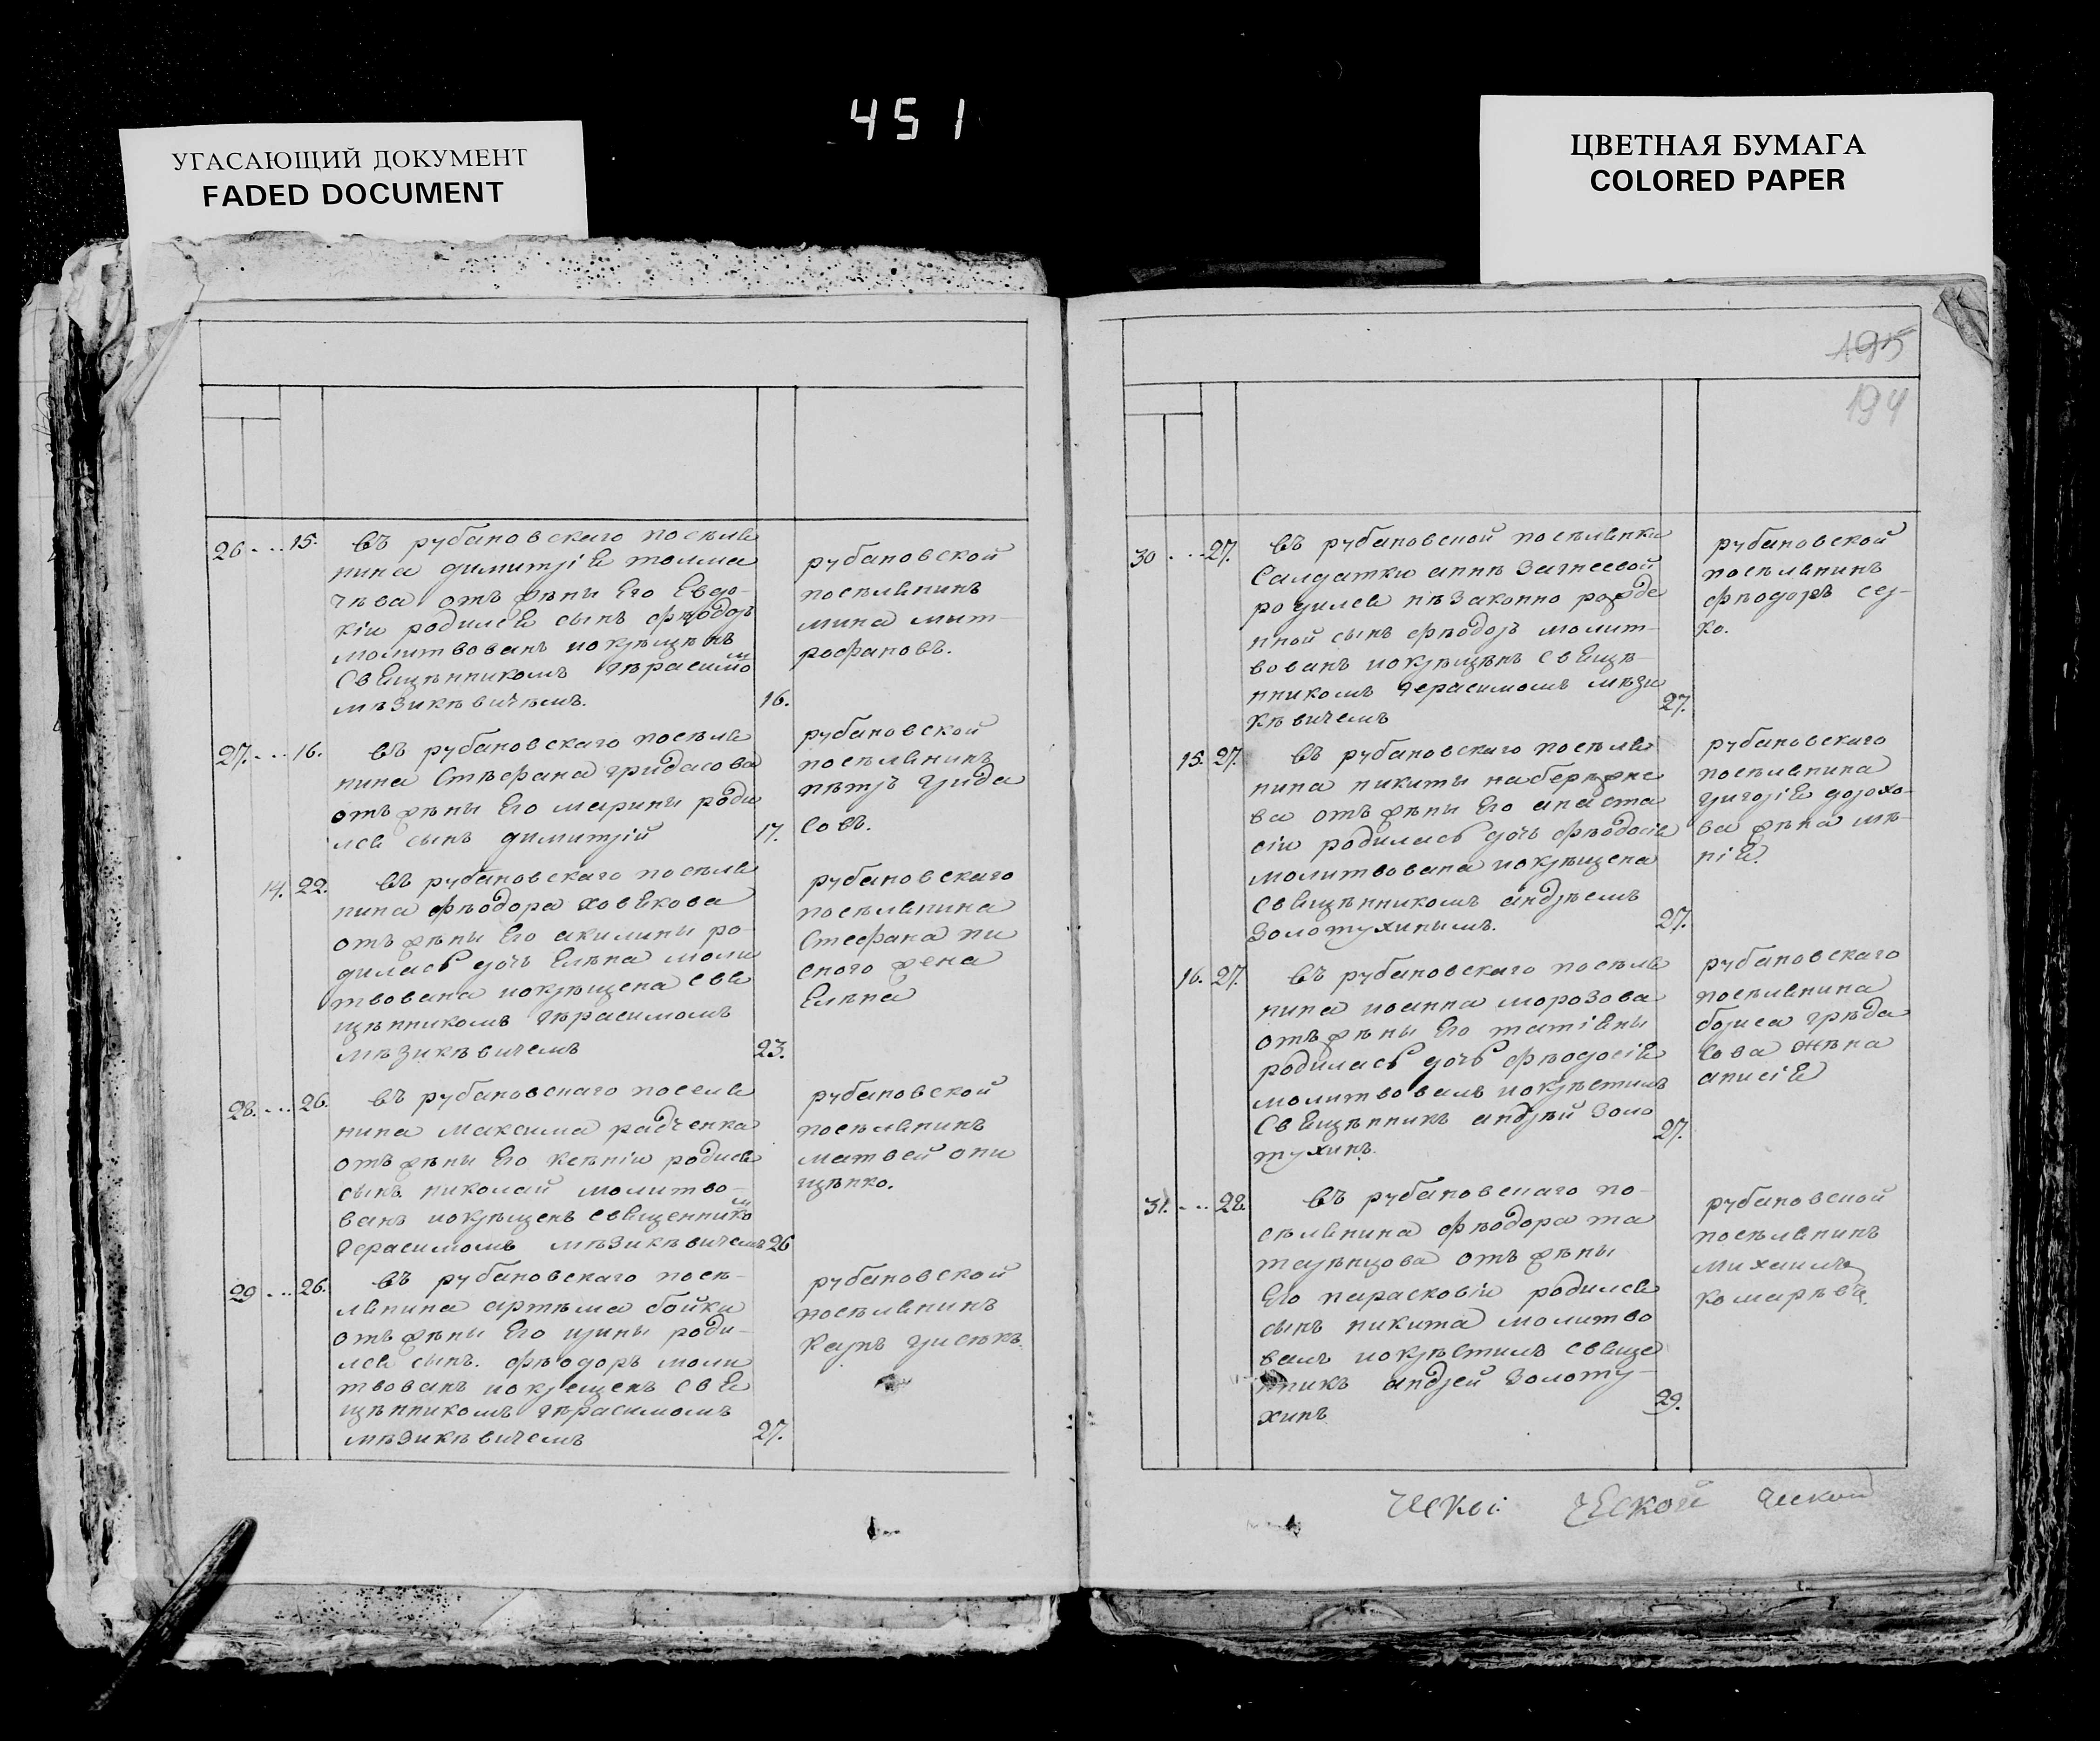 451
УГАСАЮЩИЙ ДОКУМЕНТ
FADED DOCUMENT
ЦВЕТНАЯ БУМАГА
COLORED PAPER
26 - - - 15. Въ рубановскаго посѣля
нина димитрія толма
чѣва отъ жѣны Его Евдо-
кіи родился сынъ фѣодоръ
молитвованъ и окрѣщѣнъ
СвЯщѣнникомъ гѣрасимо м
мѣзикѣвичѣмъ. 16.
рубановской
посѣлянинъ
мина мит-
рофановъ.
27. - - - 16. Въ рубановскаго посѣля
нина Стѣфана гридасова
отъ жѣны Его марины роди
лся сынъ димитрій 17.
рубановской
посѣлянинъ
пѣтръ грида
Совъ.
14. 22. Въ рубановскаго посѣля
нина фѣодора
отъ жѣны Его акилины ро-
дилась дочь Елѣна моли
твована и окрѣщена Свя
щѣнникомъ гѣрасимомъ
мѣзикѣвичемъ 23.
рубановскаго
посѣлянина
Стефана пи
сного жена
Елѣна
28. - - - 26. Въ рубановскаго поселя
нина максима радченка
отъ жѣны Его ксѣніи родися
сынъ николай молитво-
ванъ и окрѣщенъ священнико м
герасимомъ мѣзикѣвичемъ 26
рубановской
посѣлянинъ
матвей они
щѣнко.
29 - - - 26. Въ рубановскаго посѣ-
лянина артѣма бойки
отъ жѣны Его ирины роди-
лся сынъ. фѣодоръ моли
твованъ и окрещенъ СвЯ
щѣнникомъ гѣрасимомъ
мѣзикѣвичемъ 27.
рубановской
посѣлянинъ
карпъ
195
194
30 - - - 27. Въ рубановской посѣлянки
Салдатки аннѣ Загнеевой
родился нѣзаконно рожде
нной сынъ фѣодоръ молит-
вованъ и окрѣщѣнъ СвЯщѣ-
нникомъ герасимомъ мѣзи
кѣвичемъ 27.
рубановской
посѣлянинъ
фѣодоръ сер-
ко.
15. 27. Въ рубановскаго посѣля
нина никиты набережне
ва отъ жѣны Его анаста
сіи родилась дочь фѣодосія
молитвована и окрѣщена
свящѣнникомъ андрѣемъ
Золотухинымъ. 27.
рубановскаго
посѣлянина
григорія дорохо-
ва жѣна
16. 27. Въ рубановскаго посѣля
нина иоанна морозова
отъ жѣны Его татіяны
родилась дочь фѣодосія
молитвовалъ и окрѣстилъ
СвЯщѣнникъ андрѣй Золо
тухинъ. 27.
рубановскаго
посѣлянина
бориса грѣда
Сова жѣна
анисія
31. - - - 28. Въ рубановскаго по-
сѣлянина фѣодора та
таринцова отъ жѣны
Его парасковіи родился
сынъ никита молитво
валъ и окрѣстилъ свяще
нникъ андрей Золоту-
хинъ 29.
рубановской
посѣлянинъ
михаилъ
комарѣвъ.
ческой ческой